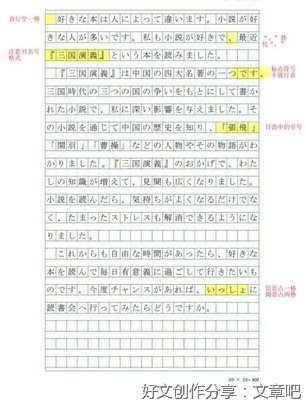 首行空一格
好きな本は人によって違います。小説が好
きな人が多いです。私も小説が好きで、最近
"、"替
代","
注意书名号
格式
『三国演義』という本を読みました。
『三国演義』は中国の四大名著の一つです。
标点符号
不放行首
三国時代の三つの国の争いをもとにして書か
れた小説で、私に深い影響を与えました。そ
の小説を通じて中国の歴史を知り、「張飛」
日语中的引号
「関羽」「曹操」などの人物やその物語がわ
かりました。『三国演義』のおかげで、わた
しの知識が増えて、見聞も広くなりました。
小説を読んだら、気持ちがよくなるだけでな
く、たまったストレスも解消できるようにな
りました。
これからも自由な時間があったら、好きな
本を読んで毎日有意義に過ごして行きたいも
のです。今度チャンスがあれば、いっしょに
促音占一格
拗音占两格
読書会へ行ってみたらどうですか。
20 × 20=400
好文创作分享：文章吧